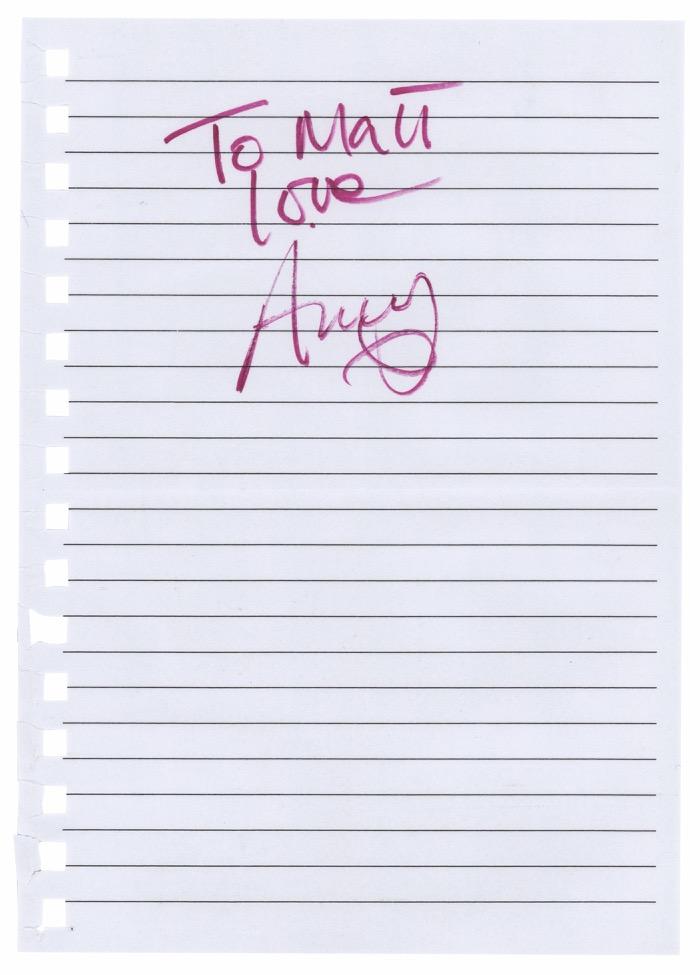 To Matt
love
Amy